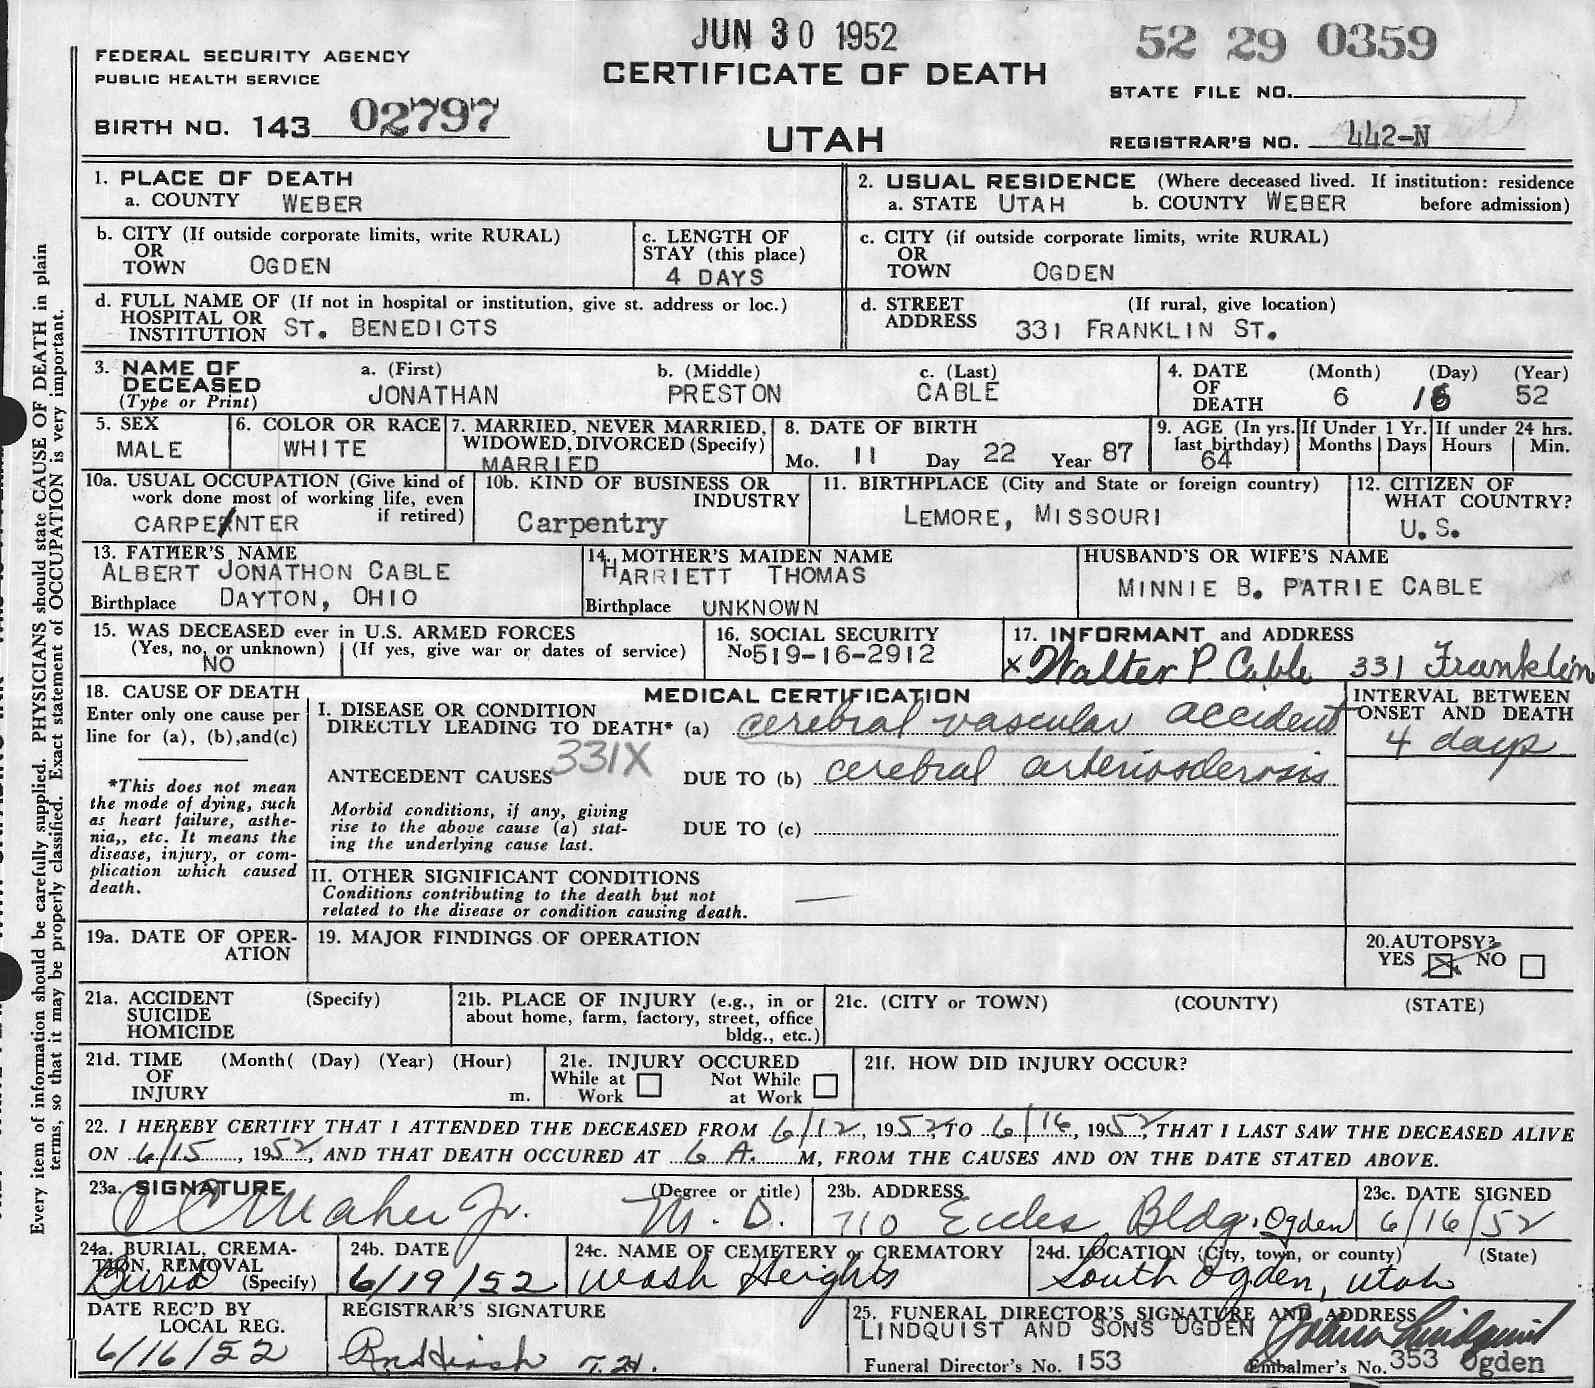 JUN 30 1952
52 29 0359
FEDERAL SECURITY AGENCY
PUBLIC HEALTH SERVICE
CERTIFICATE OF DEATH
STATE FILE NO.
BIRTH NO. 143 02797
UTAH
REGISTRAR'S NO. 442-N
Every item of information should be carefully supplied. PHYSICIANS should state CAUSE OF DEATH in plain
terms, so that it may be properly classified. Exact statement of OCCUPATION is very important.
1. PLACE OF DEATH
a. COUNTY WEBER
2. USUAL RESIDENCE (Where deceased lived. If institution: residence
a. STATE UTAH b. COUNTY WEBER before admission)
b. CITY (If outside corporate limits, write RURAL)
OR
TOWN OGDEN
c. LENGTH OF
STAY (this place)
4 DAYS
c. CITY (if outside corporate limits, write RURAL)
OR
TOWN OGDEN
d. FULL NAME OF (If not in hospital or institution, give st. address or loc.)
HOSPITAL OR
INSTITUTION ST. BENEDICTS
d. STREET (If rural, give location)
ADDRESS 331 FRANKLIN ST.
3. NAME OF
DECEASED
(Type or Print)
a. (First)
JONATHAN
b. (Middle)
PRESTON
c. (Last)
CABLE
4. DATE (Month) (Day) (Year)
OF
DEATH 6 16 52
5. SEX
MALE
6. COLOR OR RACE
WHITE
7. MARRIED, NEVER MARRIED,
WIDOWED, DIVORCED (Specify)
MARRIED
8. DATE OF BIRTH
Mo. 11 Day 22 Year 87
9. AGE (In yrs.
last birthday)
64
If Under 1 Yr.
Months Days
If under 24 hrs.
Hours Min.
10a. USUAL OCCUPATION (Give kind of
work done most of working life, even
if retired)
CARPENTER
10b. KIND OF BUSINESS OR
INDUSTRY
Carpentry
11. BIRTHPLACE (City and State or foreign country)
LEMORE, MISSOURI
12. CITIZEN OF
WHAT COUNTRY?
U.S.
13. FATHER'S NAME
ALBERT JONATHON CABLE
Birthplace DAYTON, OHIO
14. MOTHER'S MAIDEN NAME
HARRIETT THOMAS
Birthplace UNKNOWN
HUSBAND'S OR WIFE'S NAME
MINNIE B. PATRIE CABLE
15. WAS DECEASED ever in U.S. ARMED FORCES
(Yes, no, or unknown) (If yes, give war or dates of service)
NO
16. SOCIAL SECURITY
No 519-16-2912
17. INFORMANT and ADDRESS
x Walter P. Cable 331 Franklin
18. CAUSE OF DEATH
Enter only one cause per
line for (a), (b),and(c)
*This does not mean
the mode of dying, such
as heart failure, asthe-
nia,, etc. It means the
disease, injury, or com-
plication which caused
death.
MEDICAL CERTIFICATION
I. DISEASE OR CONDITION
DIRECTLY LEADING TO DEATH* (a) cerebral vascular accident
INTERVAL BETWEEN
ONSET AND DEATH
4 days
331X
ANTECEDENT CAUSES DUE TO (b) cerebral arteriosclerosis
Morbid conditions, if any, giving
rise to the above cause (a) stat-
ing the underlying cause last.
DUE TO (c)
II. OTHER SIGNIFICANT CONDITIONS
Conditions contributing to the death but not
related to the disease or condition causing death.
—
19a. DATE OF OPER-
ATION
19. MAJOR FINDINGS OF OPERATION
20. AUTOPSY?
YES NO
21a. ACCIDENT (Specify)
SUICIDE
HOMICIDE
21b. PLACE OF INJURY (e.g., in or
about home, farm, factory, street, office
bldg., etc.)
21c. (CITY or TOWN) (COUNTY) (STATE)
21d. TIME (Month( (Day) (Year) (Hour)
OF
INJURY m.
21e. INJURY OCCURED
While at Work Not While at Work
21f. HOW DID INJURY OCCUR?
22. I HEREBY CERTIFY THAT I ATTENDED THE DECEASED FROM 6/12, 1952, TO 6/16, 1952, THAT I LAST SAW THE DECEASED ALIVE
ON 6/15, 1952, AND THAT DEATH OCCURED AT 6 A. M, FROM THE CAUSES AND ON THE DATE STATED ABOVE.
23a. SIGNATURE (Degree or title)
Maher Jr. M.D.
23b. ADDRESS
710 Eccles Bldg. Ogden
23c. DATE SIGNED
6/16/52
24a. BURIAL, CREMA-
TION, REMOVAL
(Specify)
24b. DATE
6/19/52
24c. NAME OF CEMETERY or CREMATORY
Wash Heights
24d. LOCATION (City, town, or county) (State)
South Ogden, Utah
DATE REC'D BY
LOCAL REG.
6/16/52
REGISTRAR'S SIGNATURE
25. FUNERAL DIRECTOR'S SIGNATURE AND ADDRESS
LINDQUIST AND SONS OGDEN
Lindquist
Funeral Director's No. 153 Embalmer's No. 353 Ogden